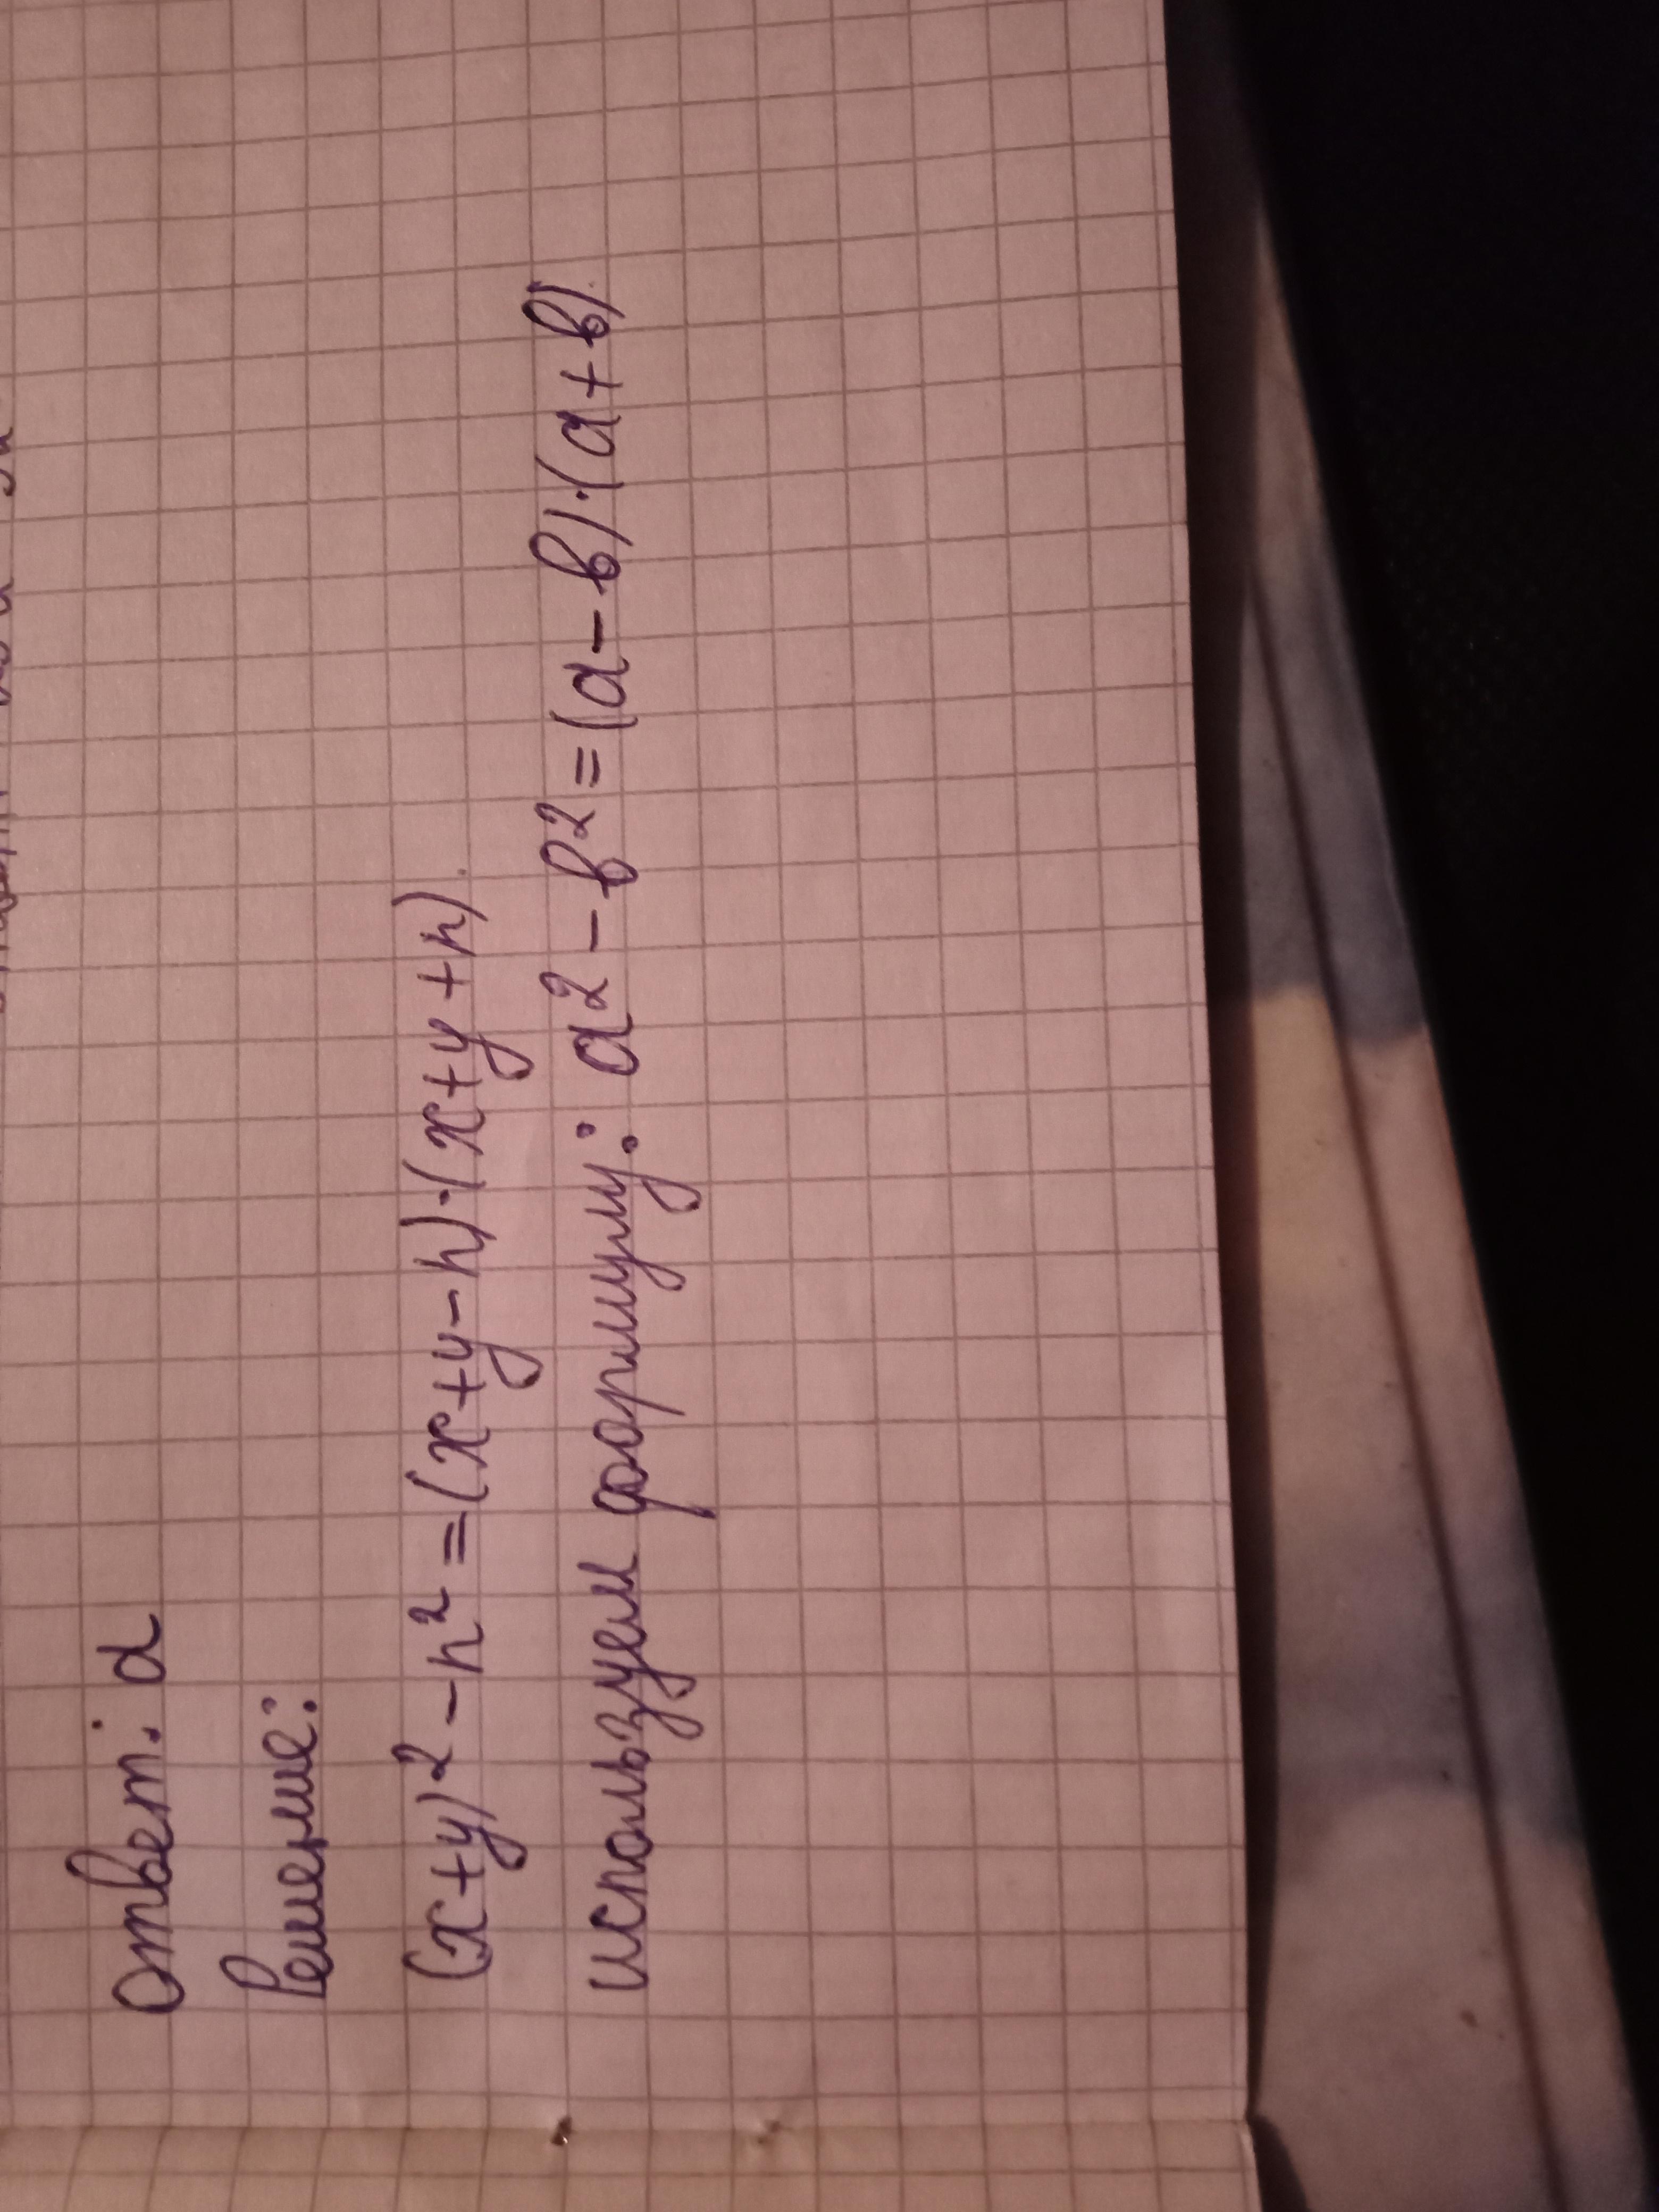 Ответ: d
Решение:
(x+y)² - h² = (x+y-h)·(x+y+h).
используем формулу: a² - b² = (a-b)·(a+b).